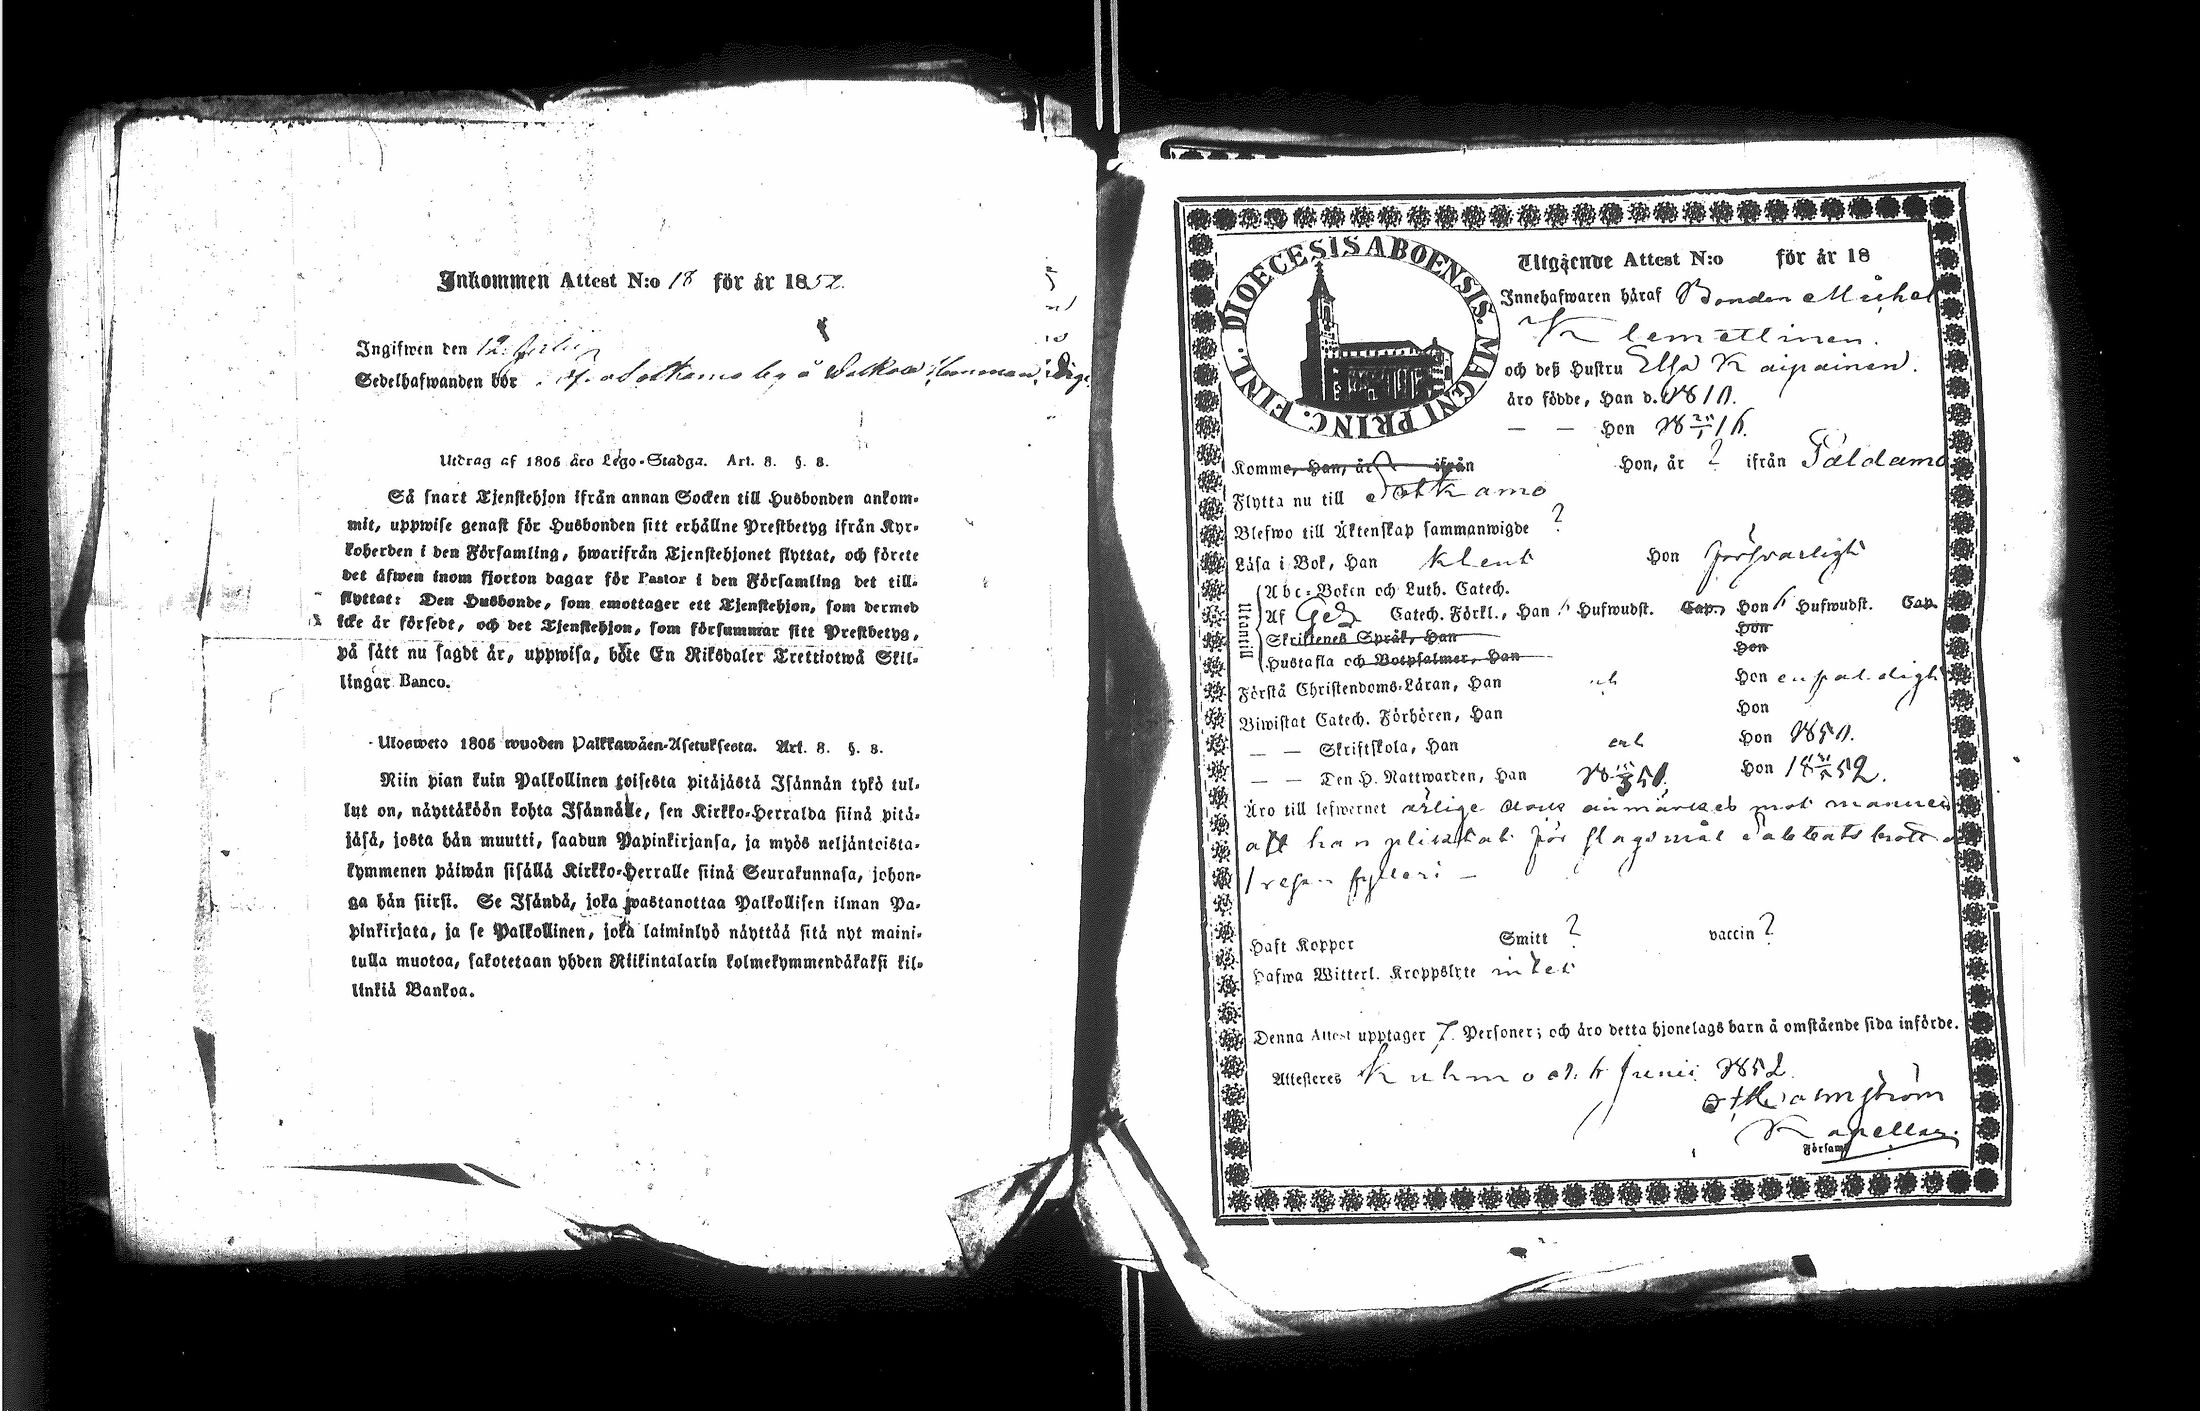 Inkommen Attest N:o 18 för år 1852.
Ingifwen den 12 Julii
Sedelhafwanden bör Sotkamo by å
Utdrag af 1805 års Lego-Stadga. Art. 8. §. 8.
Så snart Tjenstehjon ifrån annan Socken till Husbonden ankom-
mit, uppwise genast för Husbonden sitt erhållne Prestbetyg ifrån Kyr-
koherden i den Församling, hwarifrån Tjenstehjonet flyttat, och förete
det äfwen inom fjorton dagar för Pastor i den Församling det till-
flyttat: Den Husbonde, som emottager ett Tjenstehjon, som dermed
icke är försedt, och det Tjenstehjon, som försummar sitt Prestbetyg,
på sätt nu sagdt är, uppwisa, böte En Riksdaler Trettiotwå Skil-
lingar Banco.
Ulosweto 1805 wuoden Palkkawäen-Asetuksesta. Art. 8. §. 8.
Niin pian kuin Palkollinen toisesta pitäjästä Isännän tykö tul-
lut on, näyttäköön kohta Isännälle, sen Kirkko-Herralda siinä pitä-
jäsä, josta hän muutti, saadun Papinkirjansa, ja myös neljäntoista-
kymmenen päiwän sisällä Kirkko-Herralle siinä Seurakunnasa, johon-
ga hän siirsi. Se Isändä, joka wastanottaa Palkollisen ilman Pa-
pinkirjata, ja se Palkollinen, joka laiminlyö näyttää sitä nyt maini-
tulla muotoa, sakotetaan yhden Riikintalarin kolmekymmendäkaksi kil-
linkiä Bankoa.
DIOECESIS ABOENSIS. MAGNI PRINC. FINL.
Utgående Attest N:o för år 18
Innehafwaren häraf Bonden Michel
Klemettinen.
och deß Hustru Elsa Kaipainen.
äro födde, Han d. 1810.
— — Hon 18 16.
Komme, Han, år ifrån Hon, år ? ifrån Paldamo
Flytta nu till Sotkamo
Blefwo till Äktenskap sammanwigde ?
Läsa i Bok, Han klent Hon försvarligt
Utantill
Abc-Boken och Luth. Catech.
Af Gez Catech. Förkl., Han 6 Hufwudst. Cap., Hon 6 Hufwudst. Cap.
Skriftenes Språk, Han Hon
Hustafla och Botpsalmer, Han Hon
Förstå Christendoms-Läran, Han Hon enfaldigt
Biwistat Catech. Förhören, Han Hon
— — Skriftskola, Han Hon 1850.
— — Den H. Nattwarden, Han Hon
Äro till lefwernet ärlige dock anmärkes mot mannen
att han pliktat för slagsmål
resan fylleri —
Haft Koppor Smitt ? vaccin ?
Hafwa Witterl. Kroppslyte intet
Denna Attest upptager 7. Personer; och äro detta hjonelags barn å omstående sida införde.
Attesteras Kuhmo d. 6 Junii 1852.
Kapellan.
Församl.